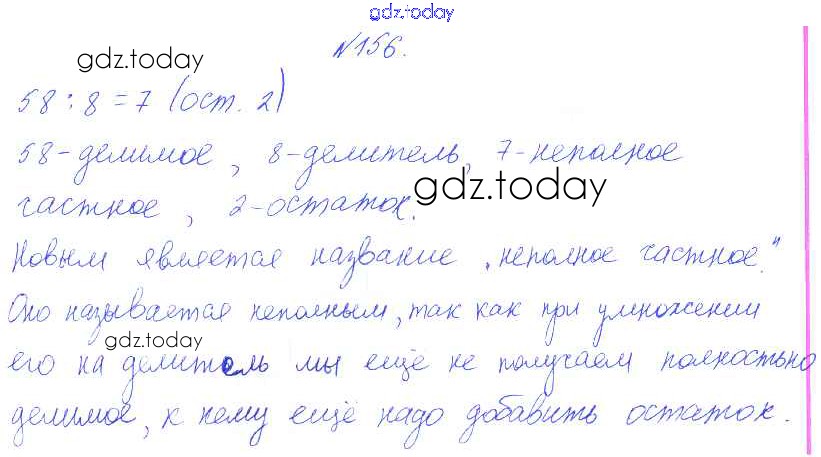 gdz.today
№156.
gdz.today
58 : 8 = 7 (ост. 2)
58-делимое, 8-делитель, 7-неполное
gdz.today
частное, 2-остаток.
Новым является название „неполное частное."
Оно называется неполным, так как при умножении
gdz.today
его на делитель мы ещё не получаем полностью
делимое, к нему ещё надо добавить остаток.